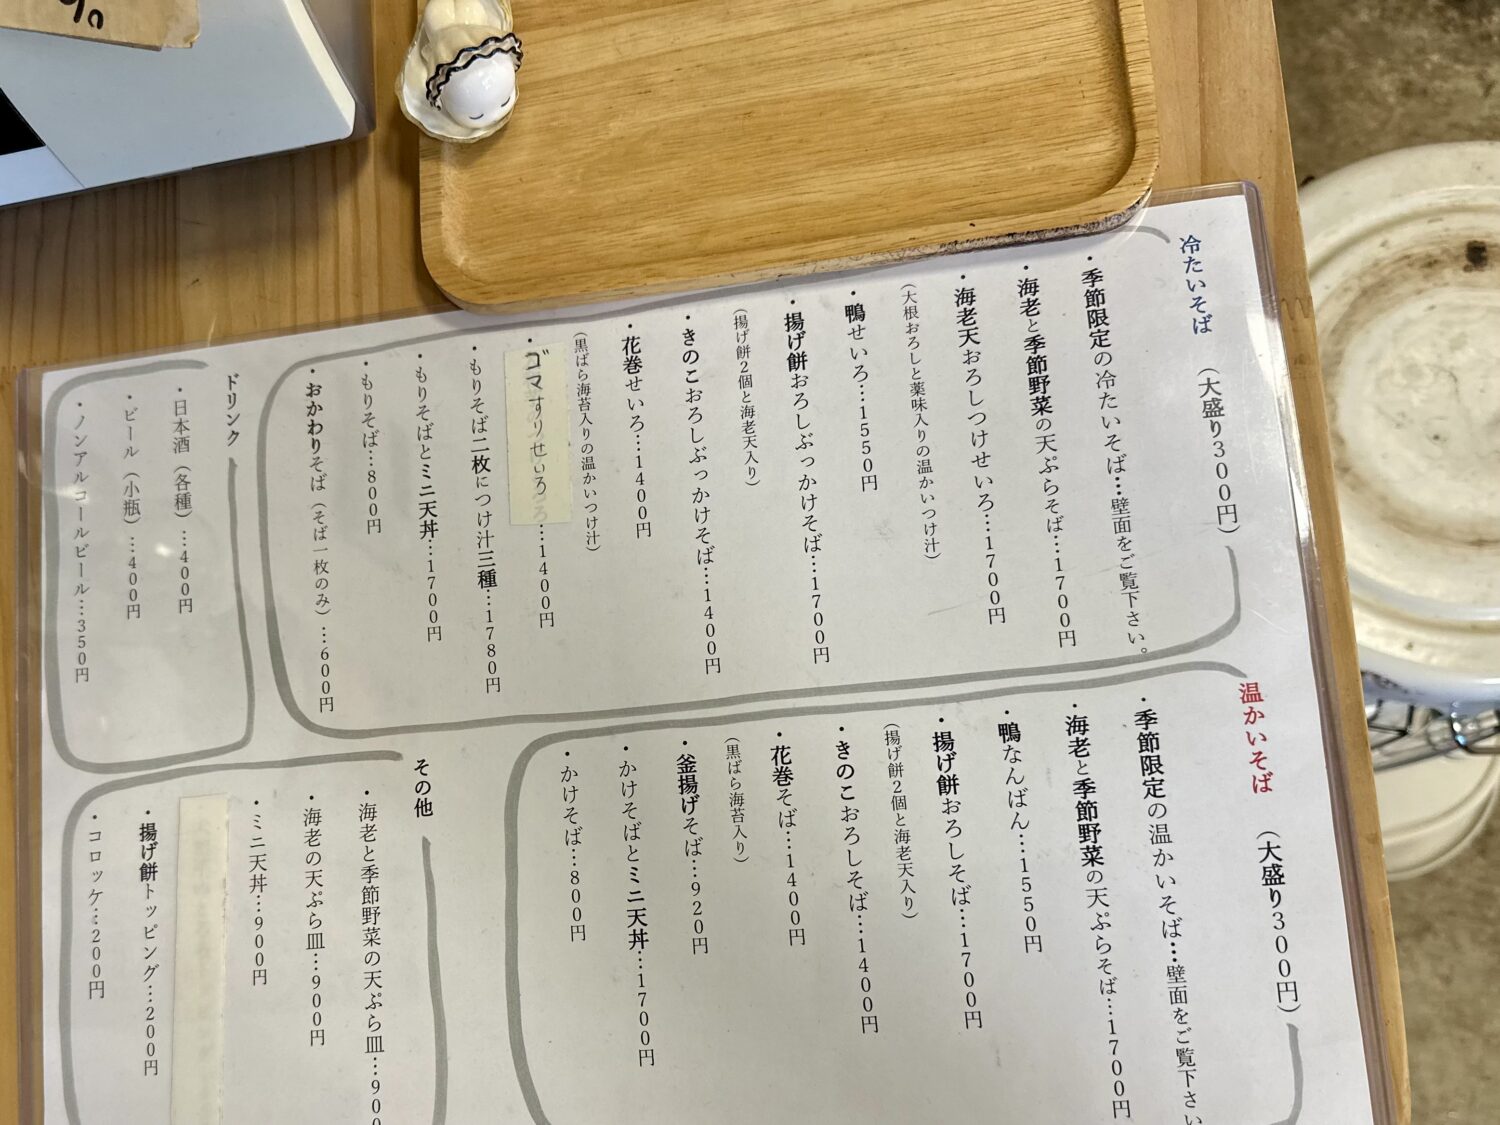 冷たいそば （大盛り300円）
・季節限定の冷たいそば…壁面をご覧下さい。
・海老と季節野菜の天ぷらそば…1700円
・海老天おろしつけせいろ…1700円
（大根おろしと薬味入りの温かいつけ汁）
・鴨せいろ…1550円
・揚げ餅おろしぶっかけそば…1700円
（揚げ餅2個と海老天入り）
・きのこおろしぶっかけそば…1400円
・花巻せいろ…1400円
（黒ばら海苔入りの温かいつけ汁）
・ゴマすりせいろ…1400円
・もりそば二枚につけ汁三種…1780円
・もりそばとミニ天丼…1700円
・もりそば…800円
・おかわりそば（そば一枚のみ）…600円
ドリンク
・日本酒（各種）…400円
・ビール（小瓶）…400円
・ノンアルコールビール…350円
温かいそば （大盛り300円）
・季節限定の温かいそば…壁面をご覧下さい
・海老と季節野菜の天ぷらそば…1700円
・鴨なんばん…1550円
・揚げ餅おろしそば…1700円
（揚げ餅2個と海老天入り）
・きのこおろしそば…1400円
・花巻そば…1400円
（黒ばら海苔入り）
・釜揚げそば…920円
・かけそばとミニ天丼…1700円
・かけそば…800円
その他
・海老と季節野菜の天ぷら皿…900
・海老の天ぷら皿…900円
・ミニ天丼…900円
・揚げ餅トッピング…200円
・コロッケ…200円